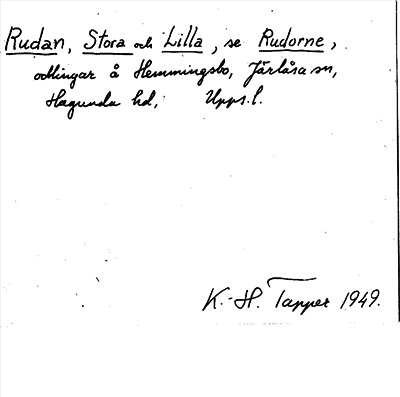 Rudan, Stora och Lilla, se Rudorne,
odlingar å Hemmingsbo, Järlåsa sn,
Hagunda hd, Upps. l.
K.-H. Tapper 1949.